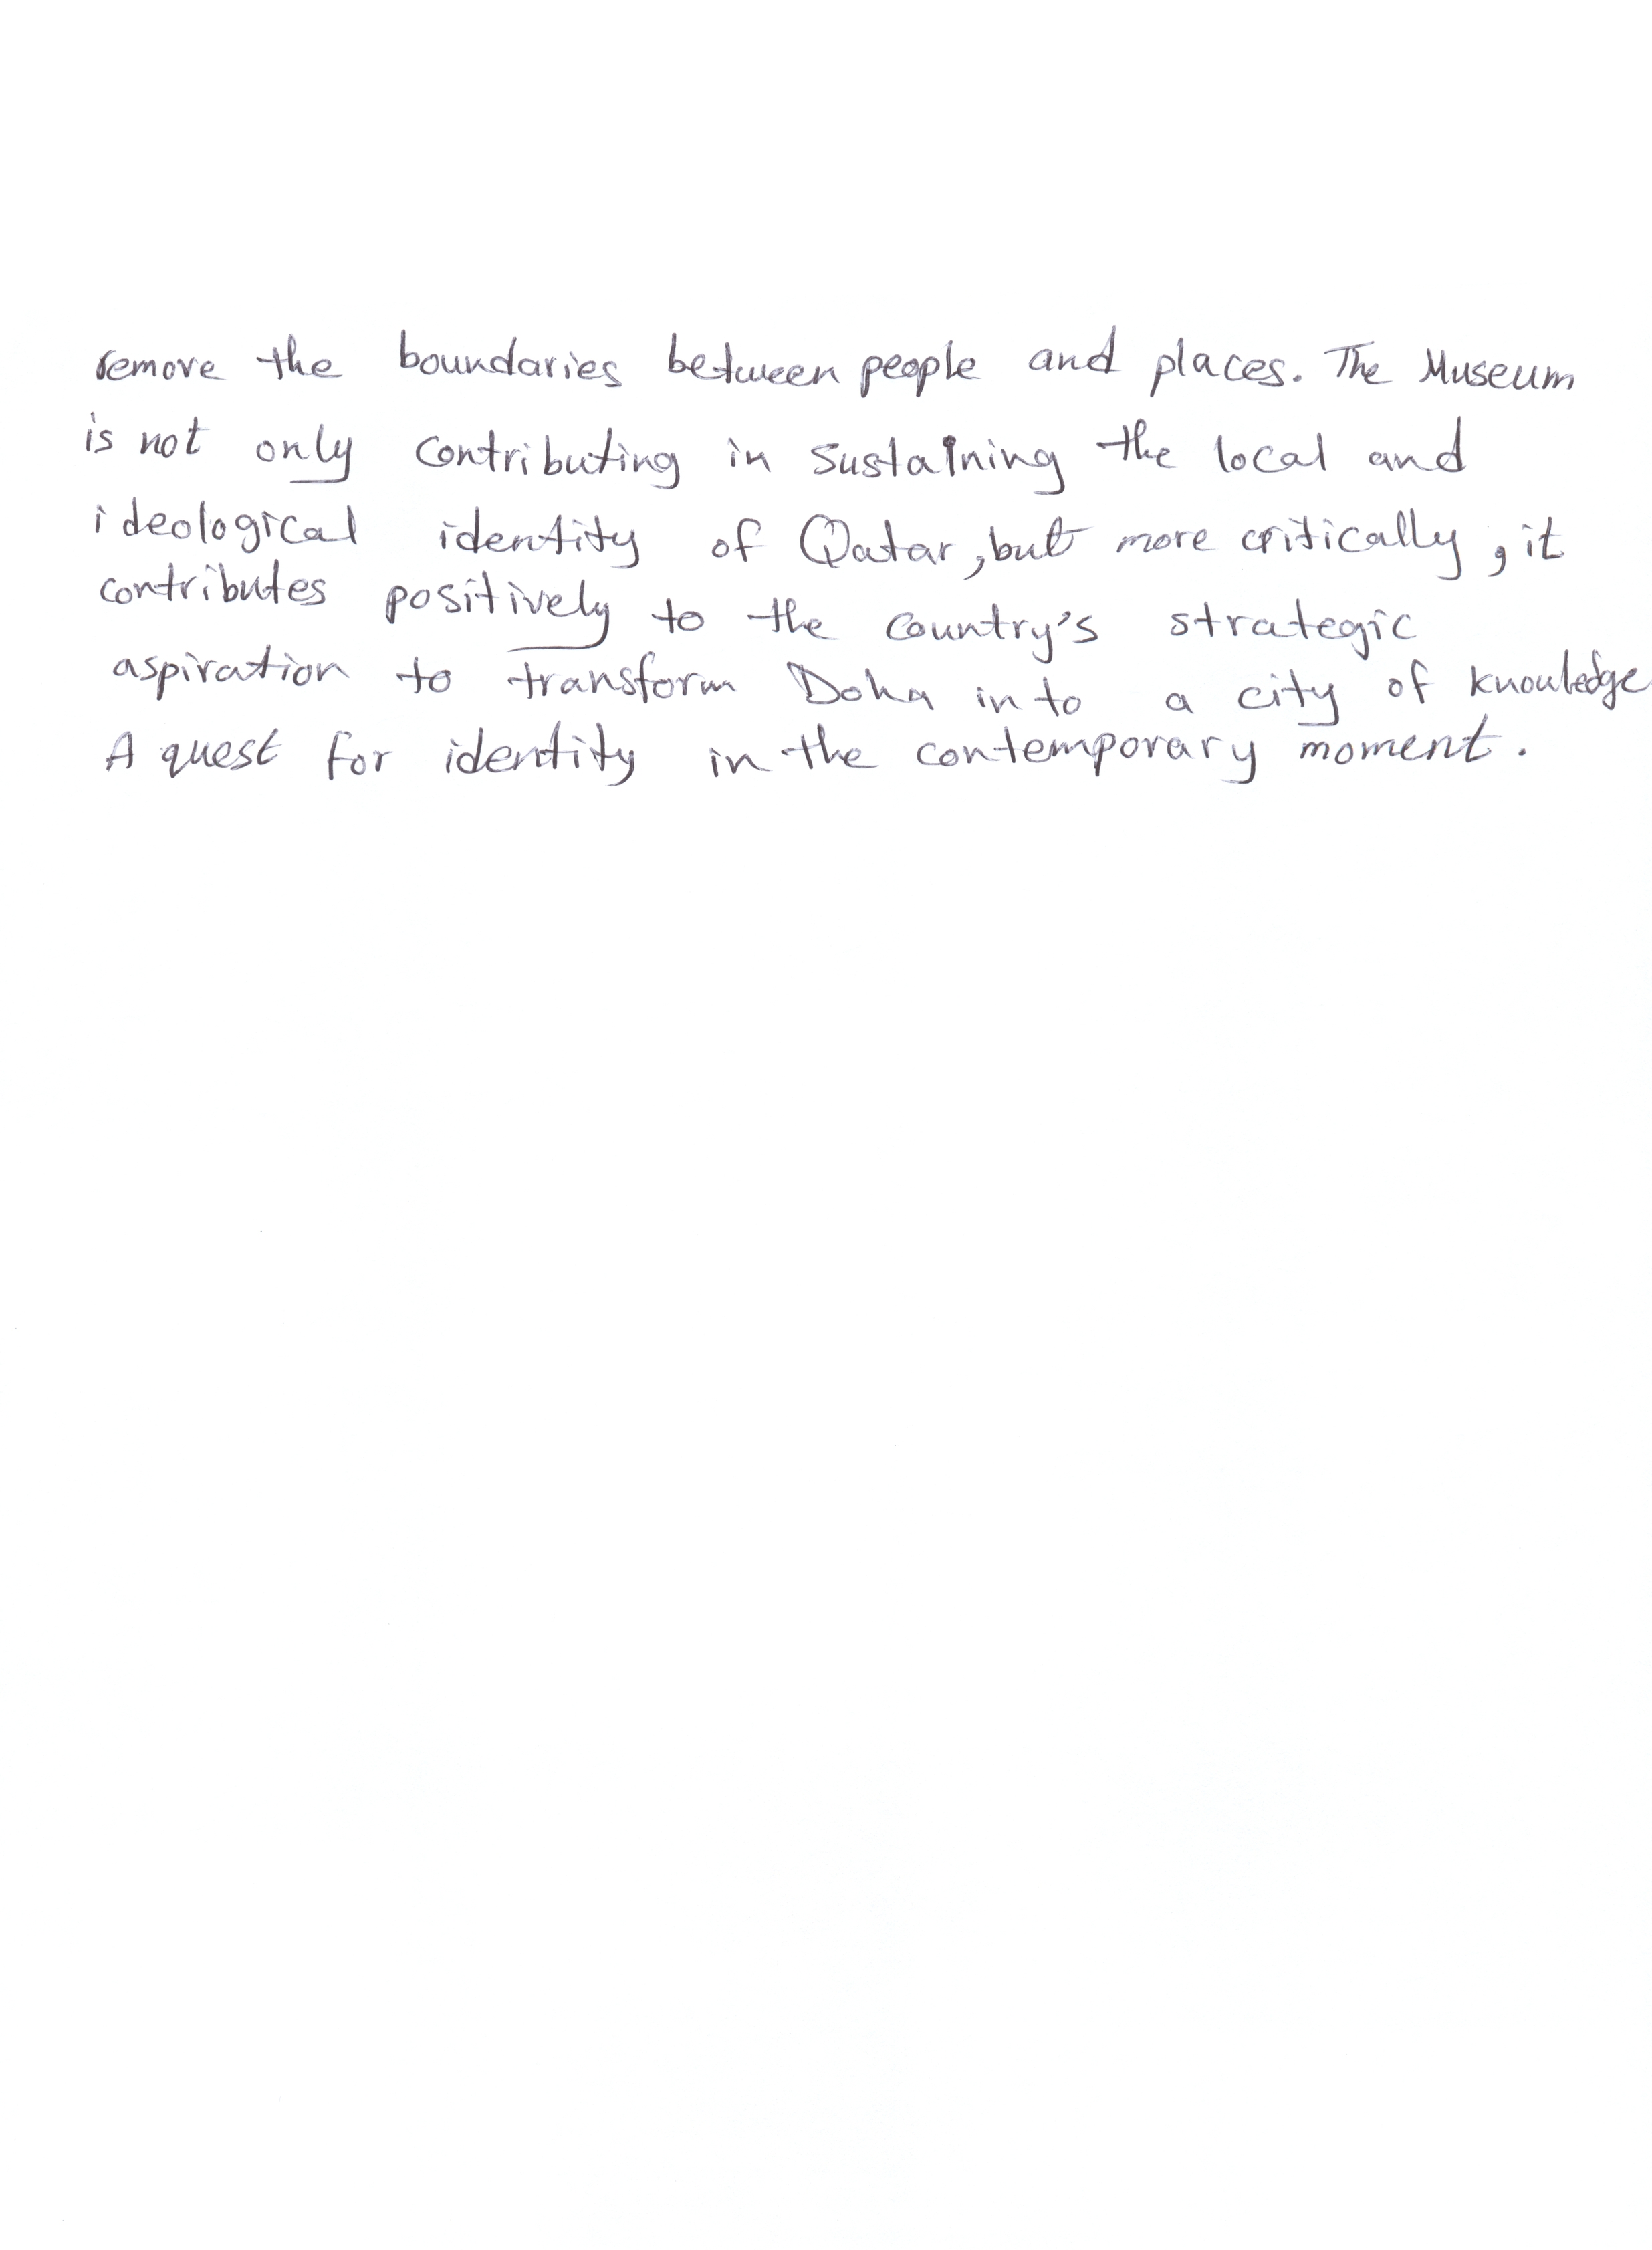 remove the boundaries between people and places. The Museum
is not only contributing in sustaining the local and
ideological identity of Qatar, but more critically, it
contributes positively to the country's strategic
aspiration to transform Doha into a city of knowledge
A quest for identity in the contemporary moment.